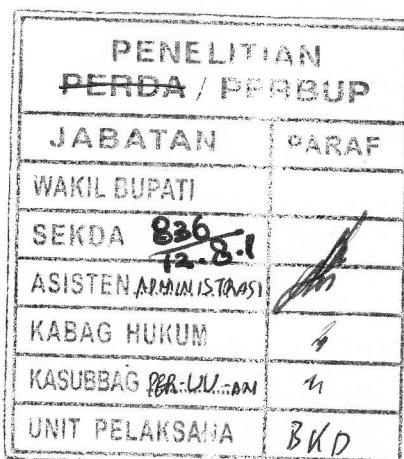 PENELITIAN
PERDA / PERBUP
JABATAN PARAF
WAKIL BUPATI
SEKDA 836
12.8.1
ASISTEN ADMINISTRASI
KABAG HUKUM
KASUBBAG PER-UU-AN
UNIT PELAKSANA BKD